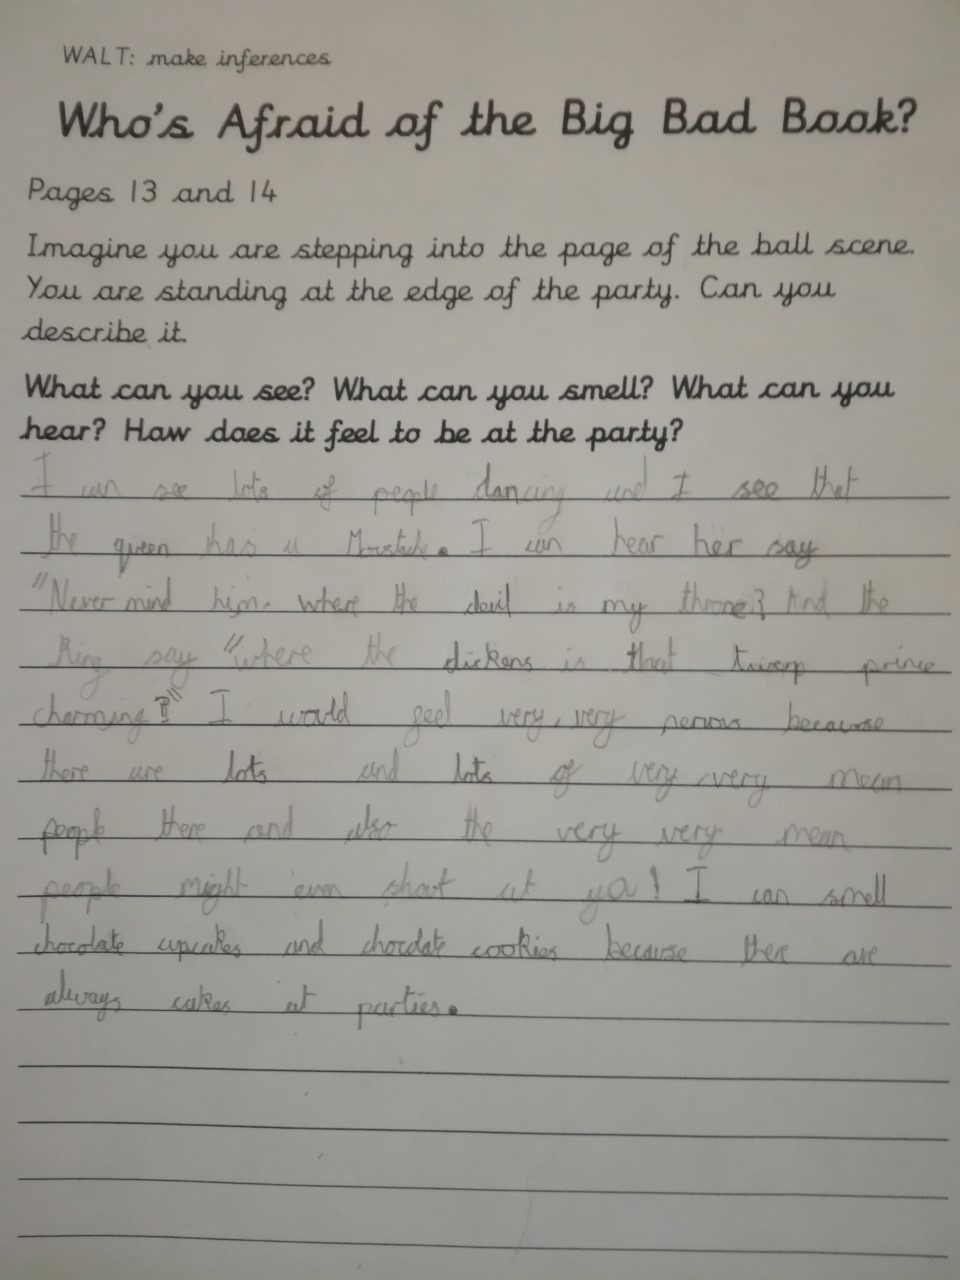 WALT: make inferences
Who's Afraid of the Big Bad Book?
Pages 13 and 14
Imagine you are stepping into the page of the ball scene.
You are standing at the edge of the party. Can you
describe it.
What can you see? What can you smell? What can you
hear? How does it feel to be at the party?
I can see lots of people dancing and I see that
the queen has a Moustache. I can hear her say
"Never mind him. where the devil is my throne? And the
King say "where the dickens is that twerp prince
charming?" I would feel very, very nervous because
there are lots and lots of very very mean
people there and also the very very mean
people might even shout at you! I can smell
chocolate cupcakes and chocolate cookies because there are
always cakes at parties.